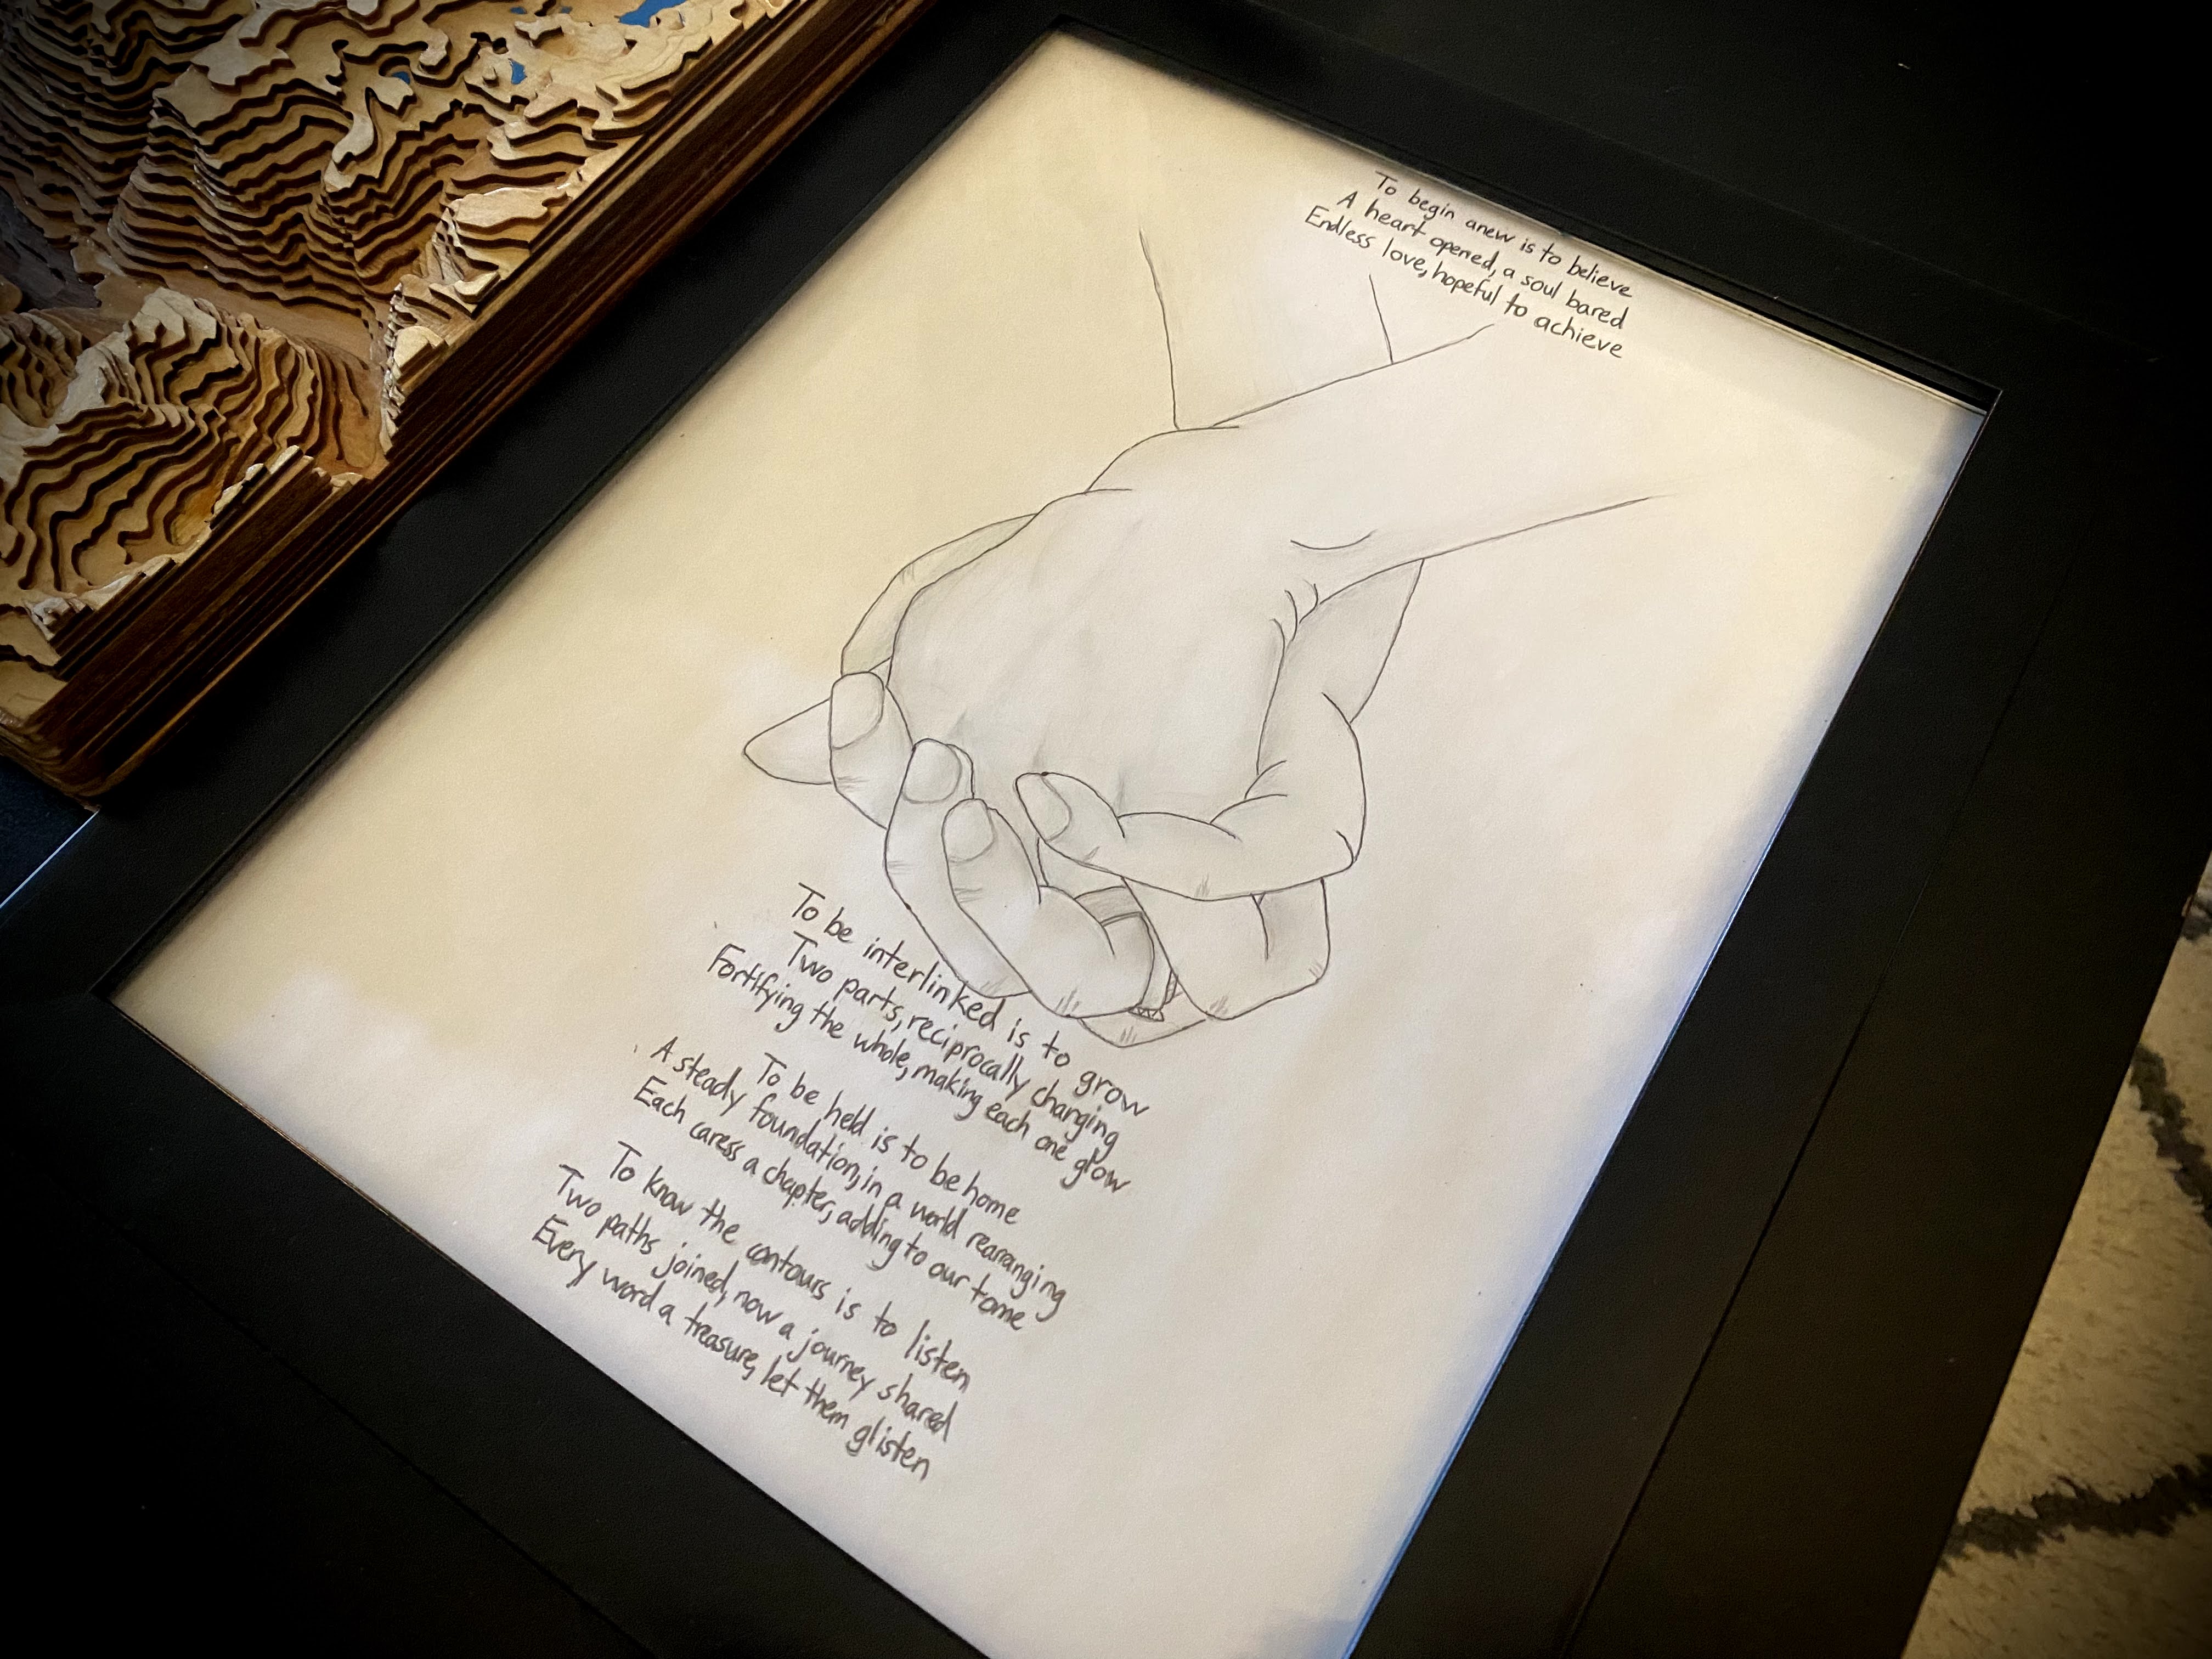 To begin anew is to believe
A heart opened, a soul bared
Endless love, hopeful to achieve
To be interlinked is to grow
Two parts, reciprocally changing
Fortifying the whole, making each one glow
To be held is to be home
A steady foundation, in a world rearanging
Each caress a chapter, adding to our tome
To know the contours is to listen
Two paths joined, now a journey shared
Every word a treasure, let them glisten